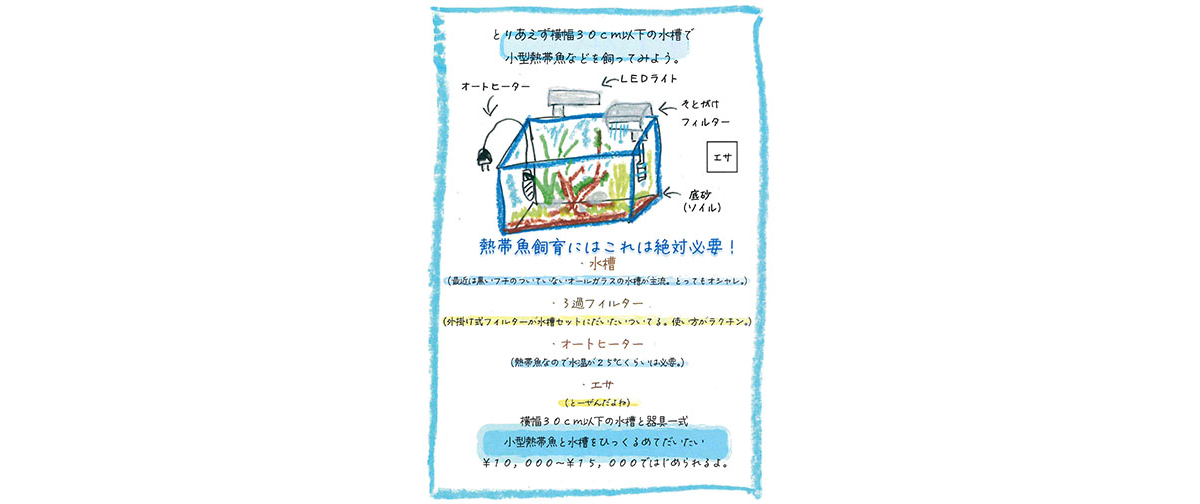 とりあえず横幅30cm以下の水槽で
小型熱帯魚などを飼ってみよう。
LEDライト
オートヒーター
そとがけ
フィルター
エサ
底砂
(ソイル)
熱帯魚飼育にはこれは絶対必要!
・水槽
(最近は黒いフチのついていないオールガラスの水槽が主流。とってもオシャレ。)
・3過フィルター
(外掛け式フィルターが水槽セットにだいたいついてる。使い方がラクチン。)
・オートヒーター
(熱帯魚なので水温が25℃くらいは必要。)
・エサ
(とーぜんだよね)
横幅30cm以下の水槽と器具一式
小型熱帯魚と水槽をひっくるめてだいたい
¥10,000~¥15,000ではじめられるよ。